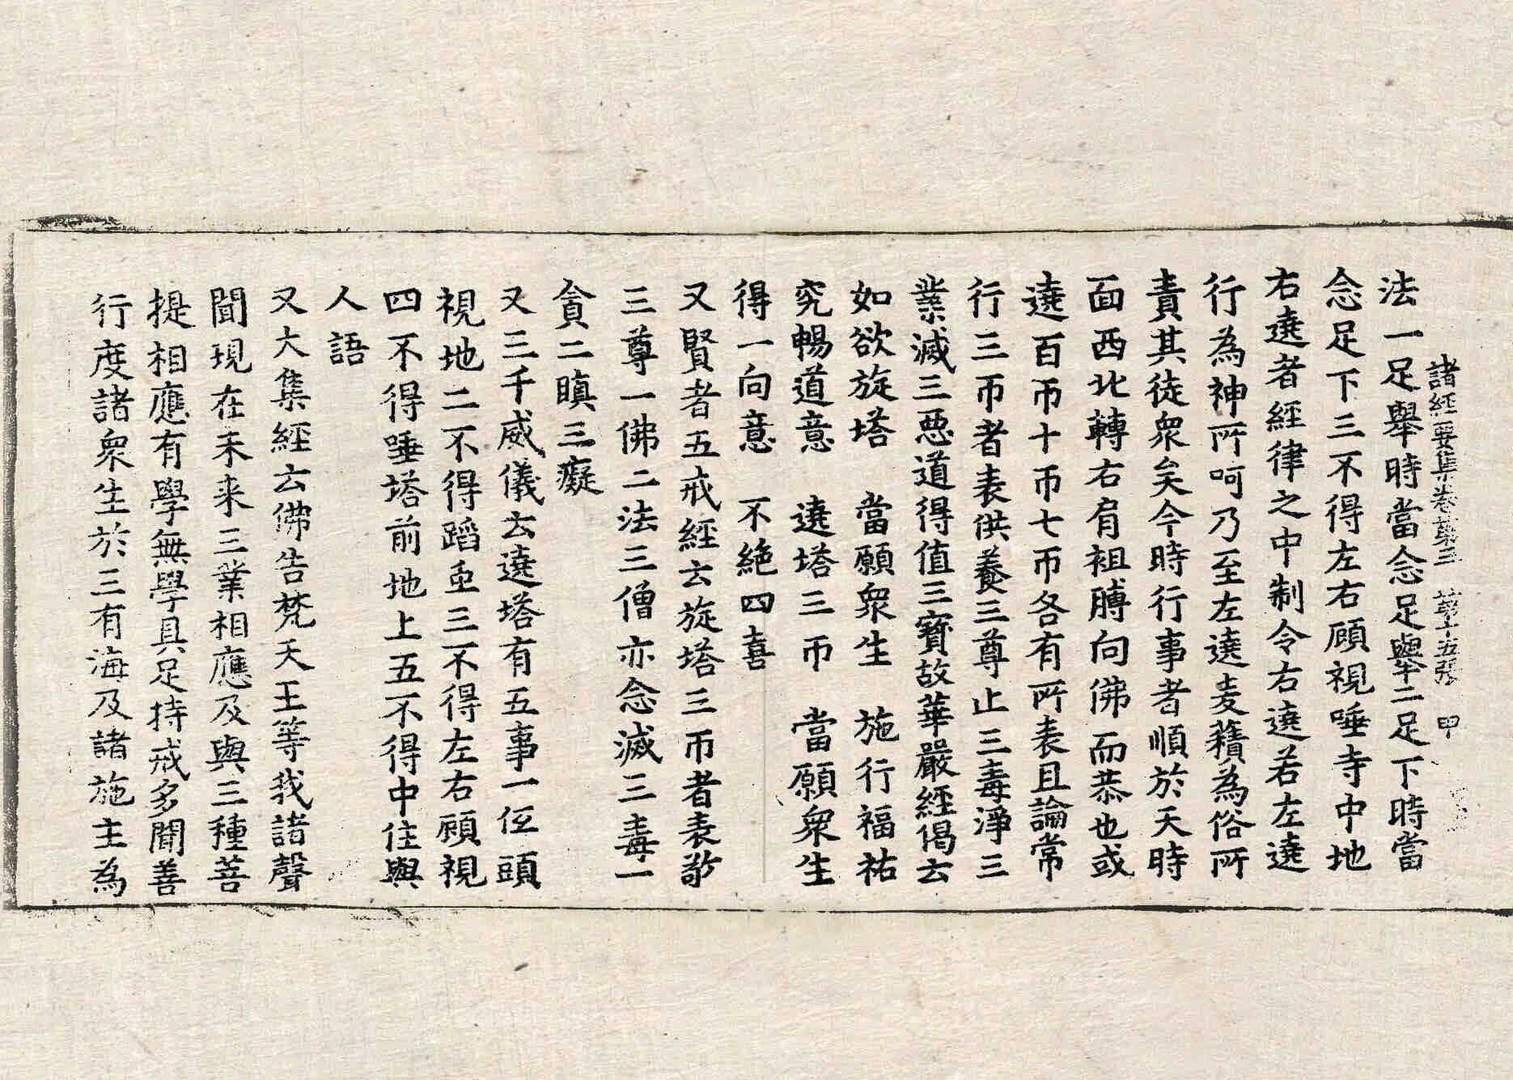 諸經要集卷第三 第十五張 甲
法一足舉時當念足舉二足下時當
念足下三不得左右顧視唾寺中地
右遶者經律之中制令右遶若左遶
行為神所呵乃至左遶麦𧂐為俗所
責其徒衆矣今時行事者順於天時
面西北轉右肩袒膊向佛而恭也或
遶百帀十帀七帀各有所表且論常
行三帀者表供養三尊止三毒淨三
業滅三惡道得值三寶故華嚴經偈云
如欲旋塔　當願衆生　施行福祐
究暢道意　遶塔三帀　當願衆生
得一向意　不絶四喜
又賢者五戒經云旋塔三帀者表敬
三尊一佛二法三僧亦念滅三毒一
貪二瞋三癡
又三千威儀云遶塔有五事一低頭
視地二不得蹈虫三不得左右顧視
四不得唾塔前地上五不得中住與
人語
又大集經云佛告梵天王等我諸聲
聞現在未来三業相應及與三種菩
提相應有學無學具足持戒多聞善
行度諸衆生於三有海及諸施主為